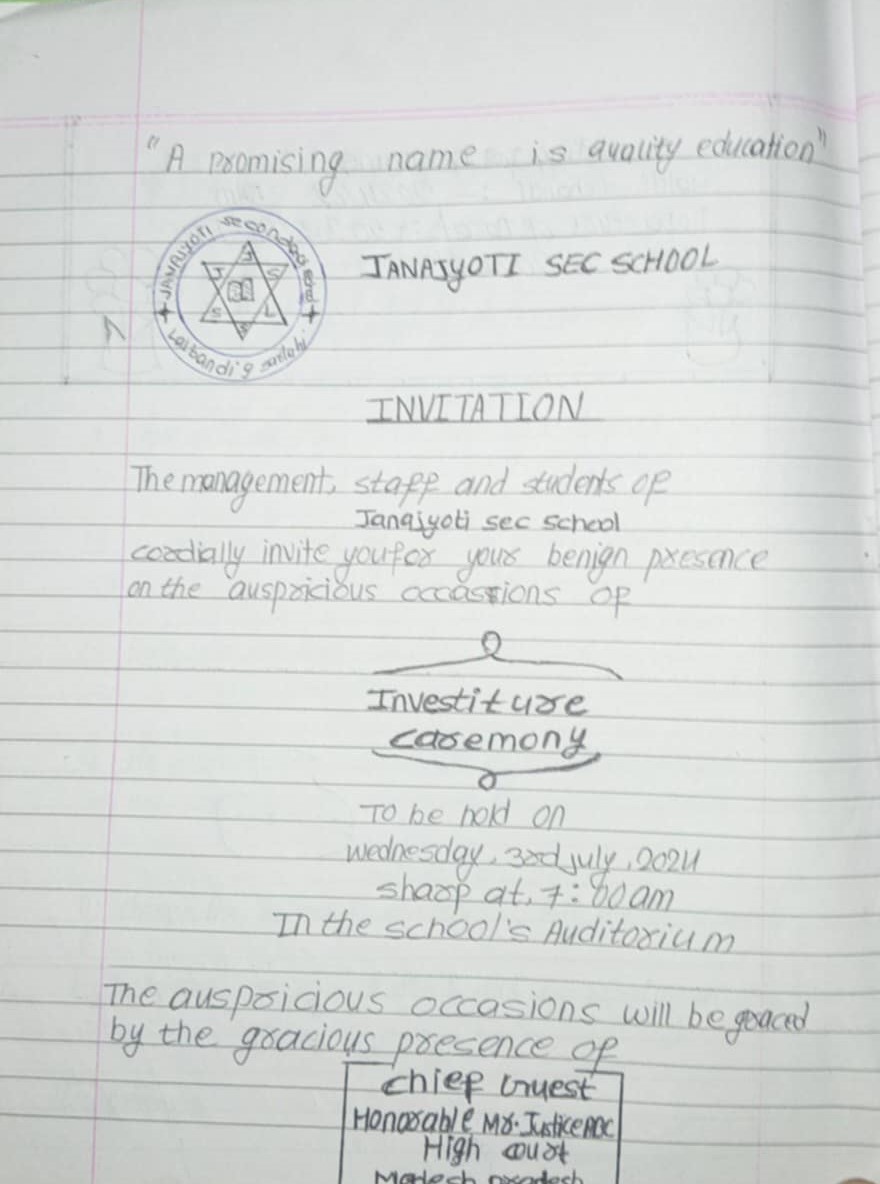 "A promising name is quality education"
JANAJYOTI SECONDARY School
Lalbandi 9 sarlahi
J S L S
JANAJYOTI SEC SCHOOL
INVITATION
The management, staff and students of
Janajyoti sec school
cordially invite you for your benign presence
on the auspricious occassions of
Investiture
caremony
To be hold on
wednesday, 3rd july, 2024
sharp at, 7:00am
In the school's Auditorium
The auspricious occasions will be graced
by the gracious presence of
chief Guest
Honorable Mr. Justice ABC
High court
pradesh